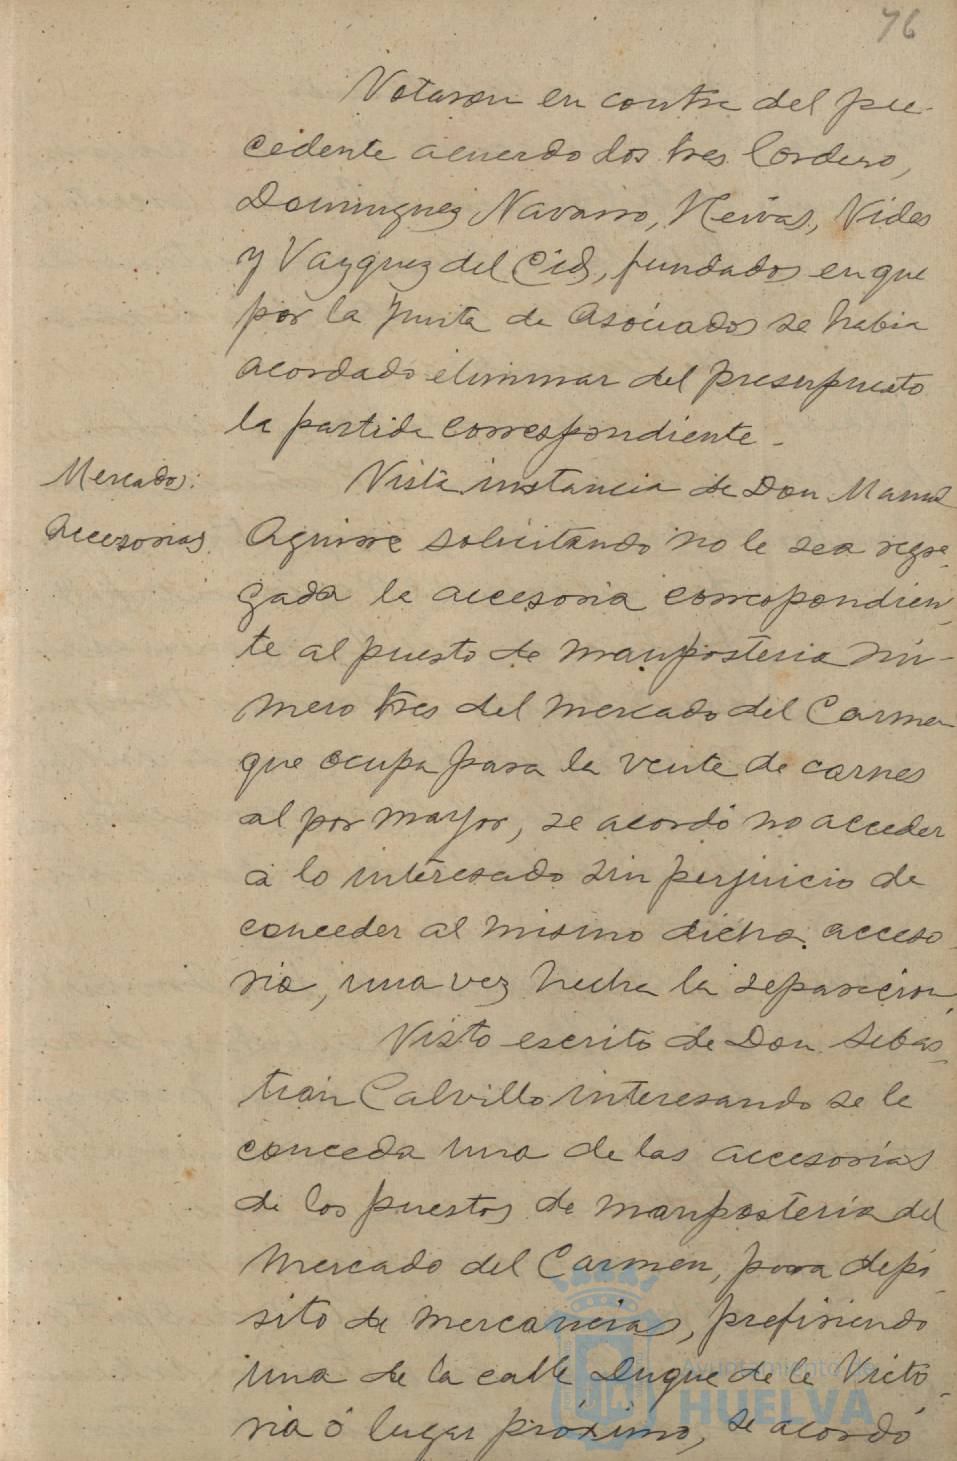 76
Votaron en contra del pre-
cedente acuerdo los tres Cordero,
Dominguez Navarro, Nervas, Vides
y Vazquez del Cid, fundados en que
por la Junta de Asociados se habia
acordado eliminar del presupuesto
la partida correspondiente.
Mercados:
Accesorias.
Vista instancia de Don Manuel
Aguirre solicitando no le sea segre-
gada la accesoria correspondien-
te al puesto de mamposteria nú-
mero tres del mercado del Carmen
que ocupa para la venta de carnes
al por mayor, se acordó no acceder
á lo interesado sin perjuicio de
conceder al mismo dicha acceso-
ria, una vez hecha la separación.
Visto escrito de Don Sebas-
tián Calvillo interesando se le
conceda una de las accesorias
de los puestos de mamposteria del
Mercado del Carmen, para depó-
sito de mercancias, prefiriendo
una de la calle Duque de la Victo-
ria ó lugar próximo, se acordó
Ayuntamiento de
HUELVA